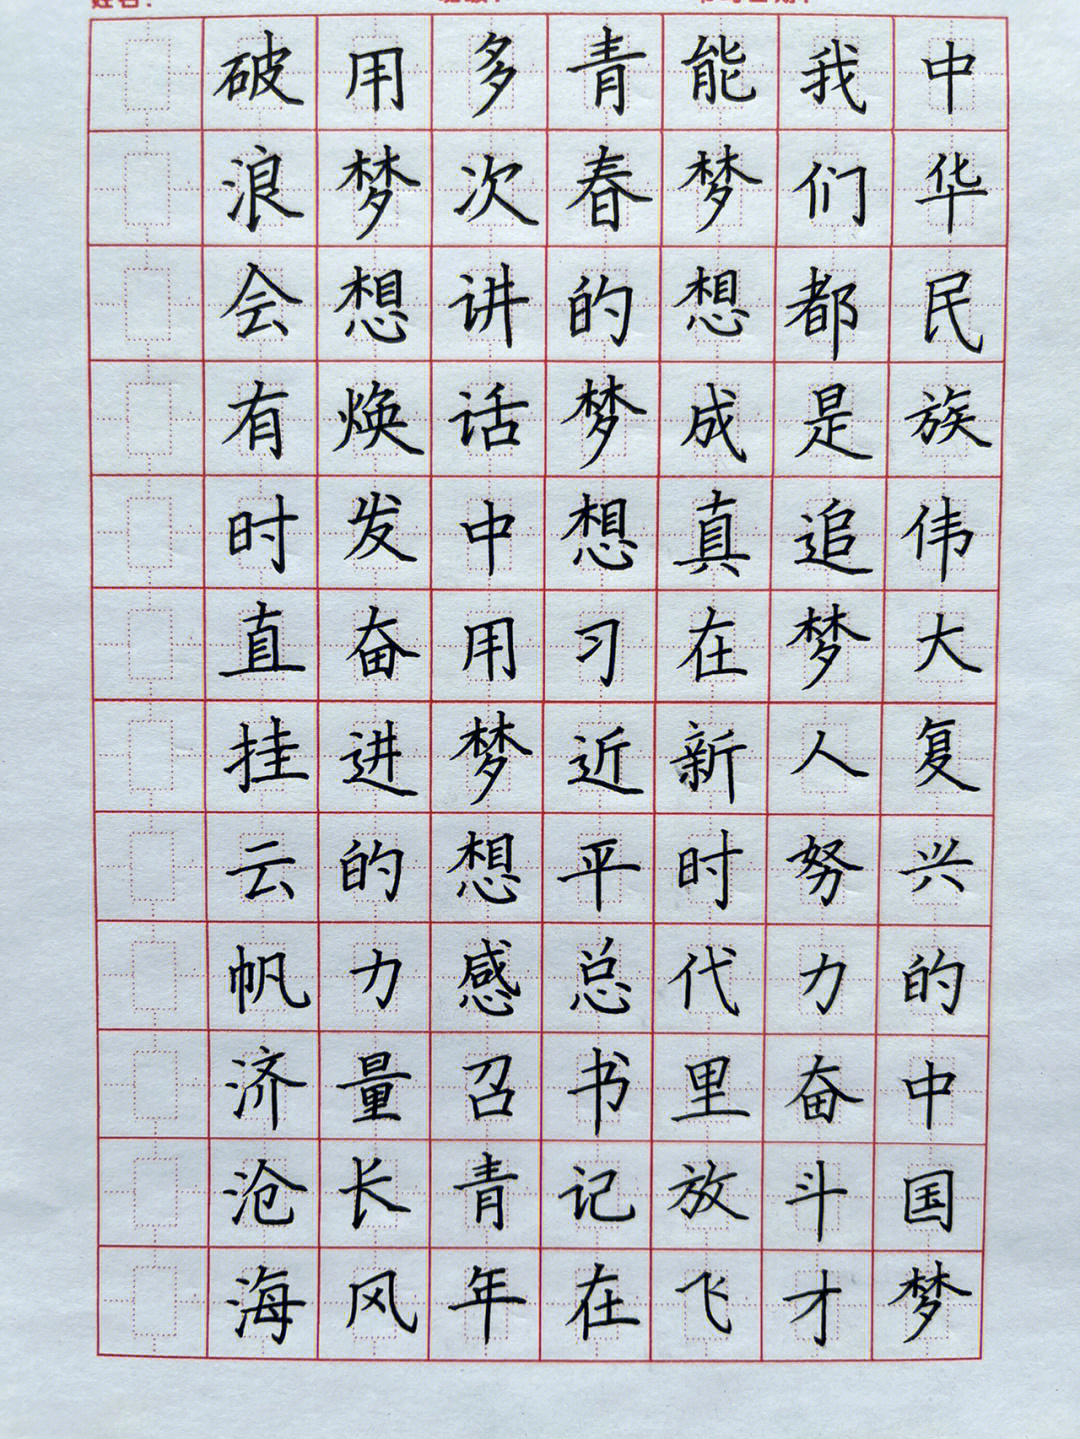 中华民族伟大复兴的中国梦
我们都是追梦人努力奋斗才
能梦想成真在新时代里放飞
青春的梦想习近平总书记在
多次讲话中用梦想感召青年
用梦想焕发奋进的力量长风
破浪会有时直挂云帆济沧海